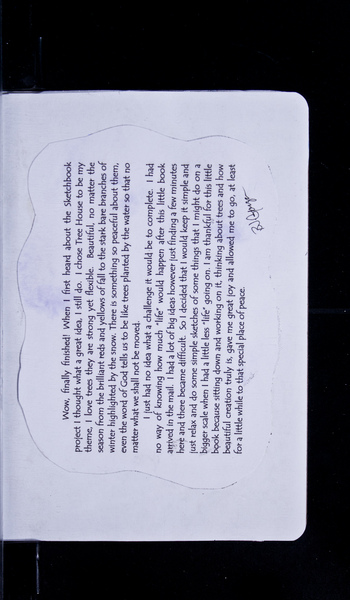 Wow, finally finished! When I first heard about the Sketchbook
project I thought what a great idea, I still do. I chose Tree House to be my
theme, I love trees they are strong yet flexible. Beautiful, no matter the
season from the brilliant reds and yellows of fall to the stark bare branches of
winter highlighted by the snow. There is something so peaceful about them,
even the word of God tells us to be like trees planted by the water so that no
matter what we shall not be moved.
I just had no idea what a challenge it would be to complete. I had
no way of knowing how much "life" would happen after this little book
arrived in the mail. I had a lot of big ideas however just finding a few minutes
here and there became difficult. So I decided that I would keep it simple and
just relax and do some simple sketches of some things that I might do on a
bigger scale when I had a little less "life" going on. I am thankful for this little
book because sitting down and working on it, thinking about trees and how
beautiful creation truly is, gave me great joy and allowed me to go, at least
for a little while to that special place of peace.